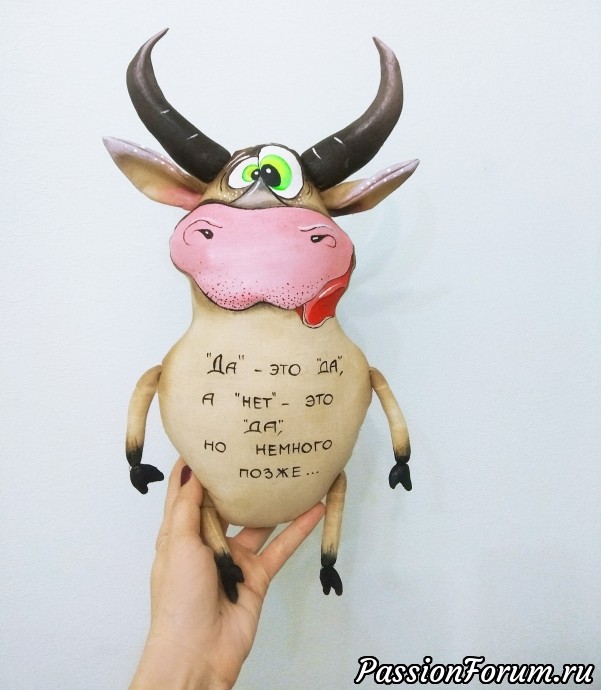 "Да" - это "да",
а "нет" - это
"да",
но немного
позже...
PassionForum.ru